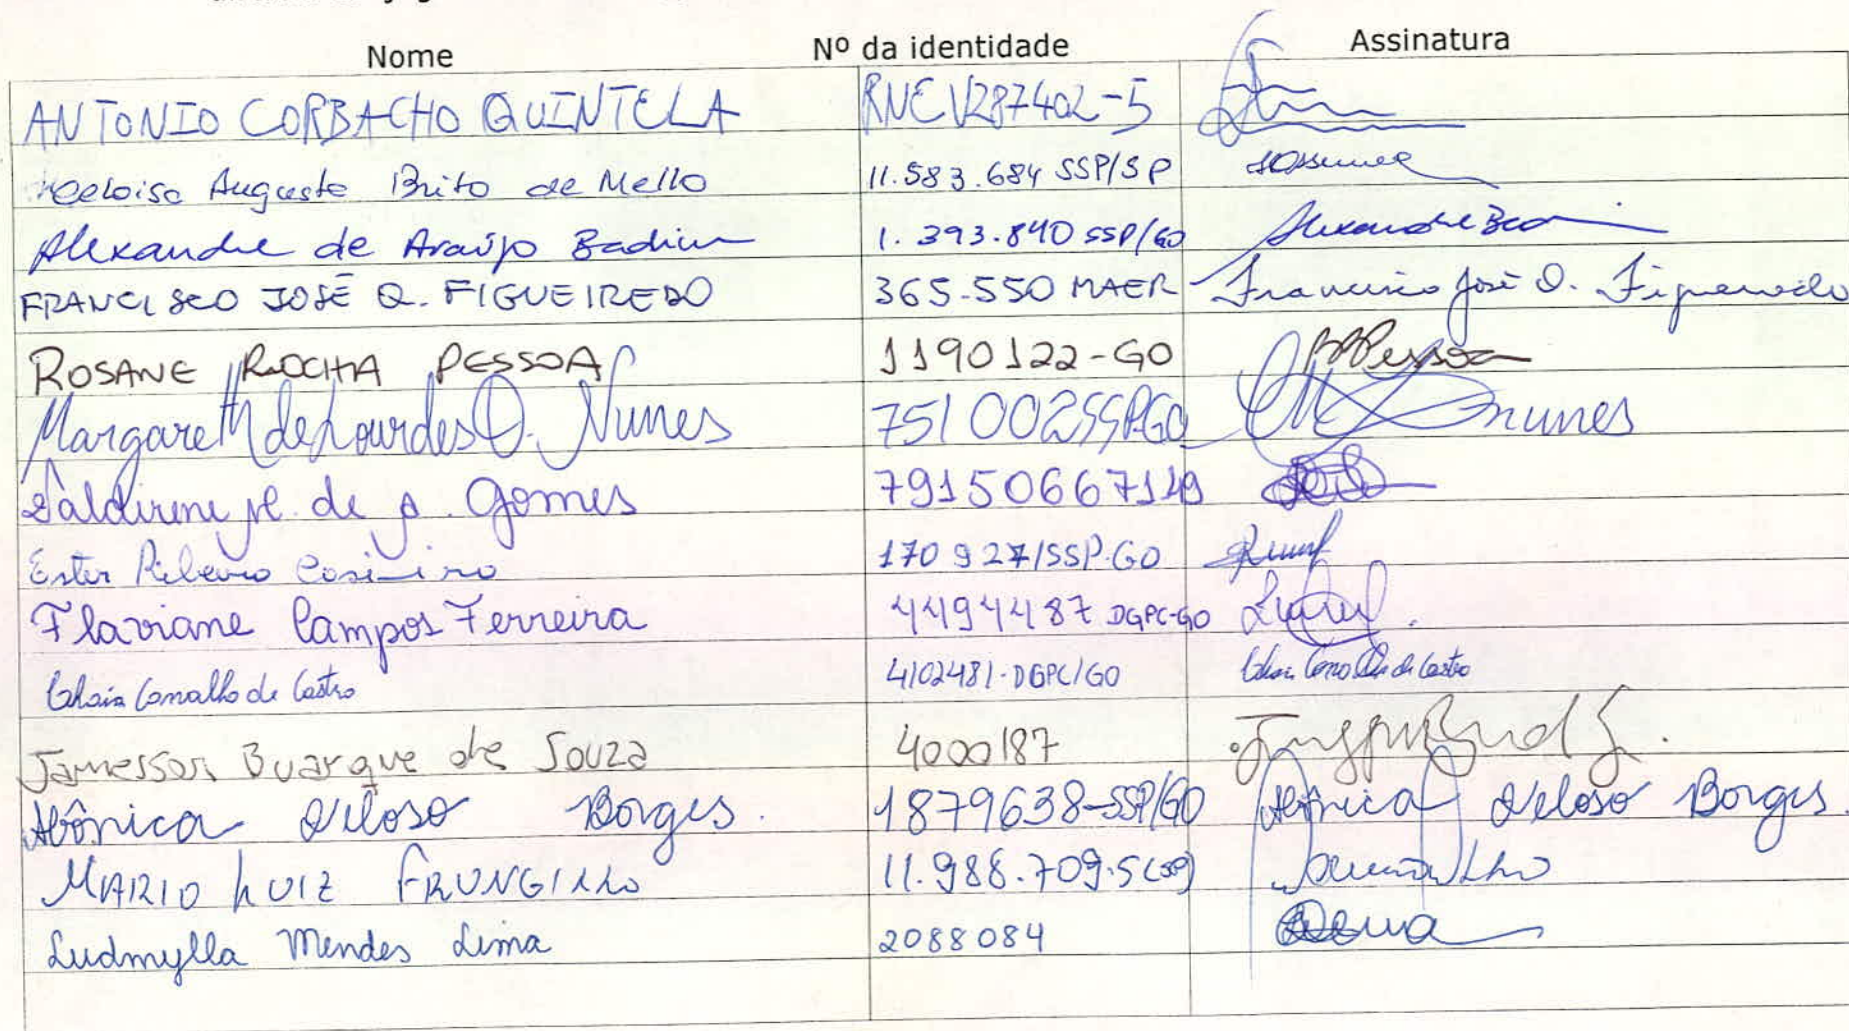 Nome Nº da identidade Assinatura
ANTONIO CORBACHO QUINTELA RNE V287402-5
Heloisa Augusta Brito de Mello 11.583.684 SSP/SP
Alexandre de Araújo Badim 1.393.840 SSP/GO
FRANCISCO JOSÉ Q. FIGUEIREDO 365.550 MAER Francisco José Q. Figueiredo
ROSANE ROCHA PESSOA 1190122-GO Pessoa
Margareth de Lourdes O. Nunes 751002 SSP-GO nunes
Valdirene M. de A. Gomes 79150667149
Ester Ribeiro Casimiro 170927/SSP-GO
Flaviane Campos Ferreira 4494487 DGPC-GO
Carvalho de Castro 4102481-DGPC/GO de Castro
Jamesson Buarque de Souza 4000187
Mônica Veloso Borges. 1879638-SSP/GO Mônica Veloso Borges.
MARIO LUIZ FRUNGILLO 11.986.709-5 (SP)
Ludmylla Mendes Lima 2088084